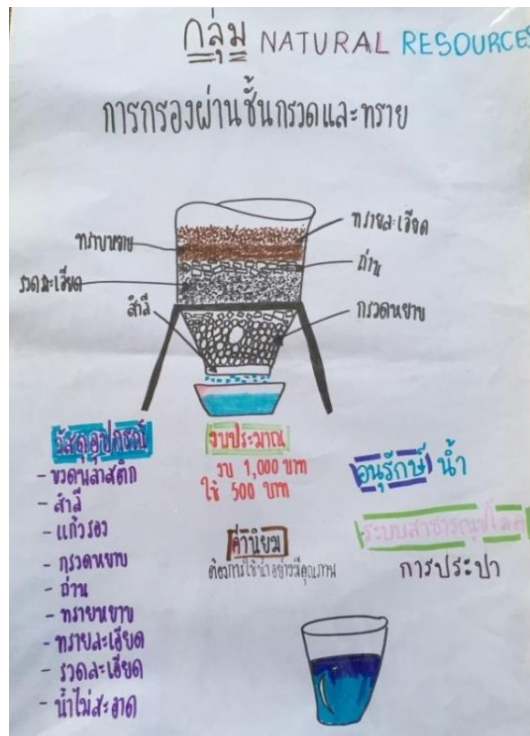 กลุ่ม NATURAL RESOURCES
การกรองผ่านชั้นกรวดและทราย
ทรายละเอียด
ทรายหยาบ
ถ่าน
รวดละเอียด
สำลี
กรวดหยาบ
วัสดุอุปกรณ์
- ขวดพลาสติก
- สำลี
- แก้วรอง
- กรวดหยาบ
- ถ่าน
- ทรายหยาบ
- ทรายละเอียด
- รวดละเอียด
- น้ำไม่สะอาด
งบประมาณ
งบ 1,000 บาท
ใช้ 500 บาท
ค่านิยม
ต้องการใช้น้ำอย่างมีคุณภาพ
อนุรักษ์ น้ำ
ระบบสาธารณูปโภค
การประปา